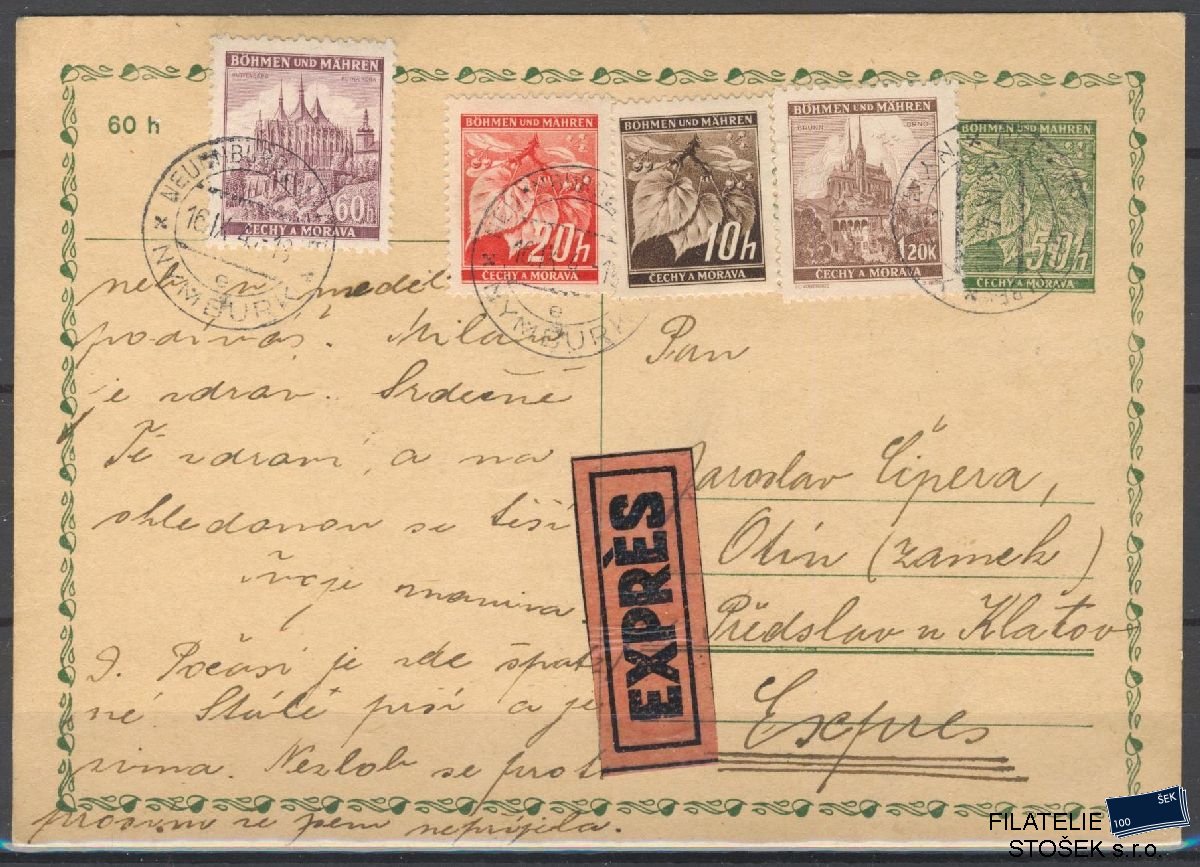 60 h
BÖHMEN UND MÄHREN
60h
ČECHY A MORAVA
BÖHMEN UND MÄHREN
20h
ČECHY A MORAVA
BÖHMEN UND MÄHREN
10h
ČECHY A MORAVA
BÖHMEN UND MÄHREN
BRÜNN BRNO
1.20K
ČECHY A MORAVA
BÖHMEN UND MÄHREN
50h
ČECHY A MORAVA
NYMBURK
e
NYMBURK
e
v neděli
podívat. Milan
je zdráv. Srdečně
Tě zdraví, a na
shledanou se těší
Tvoje mamina.
Počasí je zde špat
né. Stále prší a je
zima. Nezlob se proti
prosím že jsem nepřijela.
EXPRÈS
Pan
Jaroslav Čipera,
Otín (zámek)
Předslav u Klatov
Expres
FILATELIE
STOŠEK s.r.o.
100
ŠEK